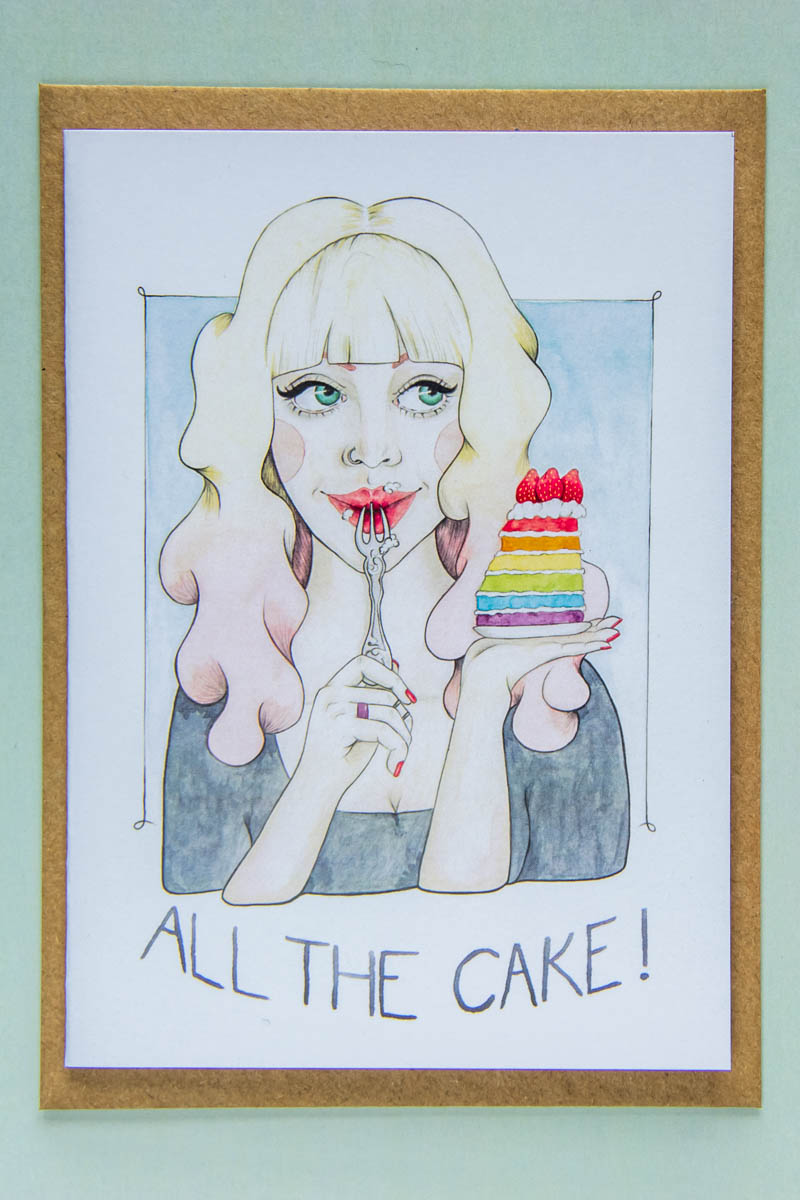 ALL THE CAKE!